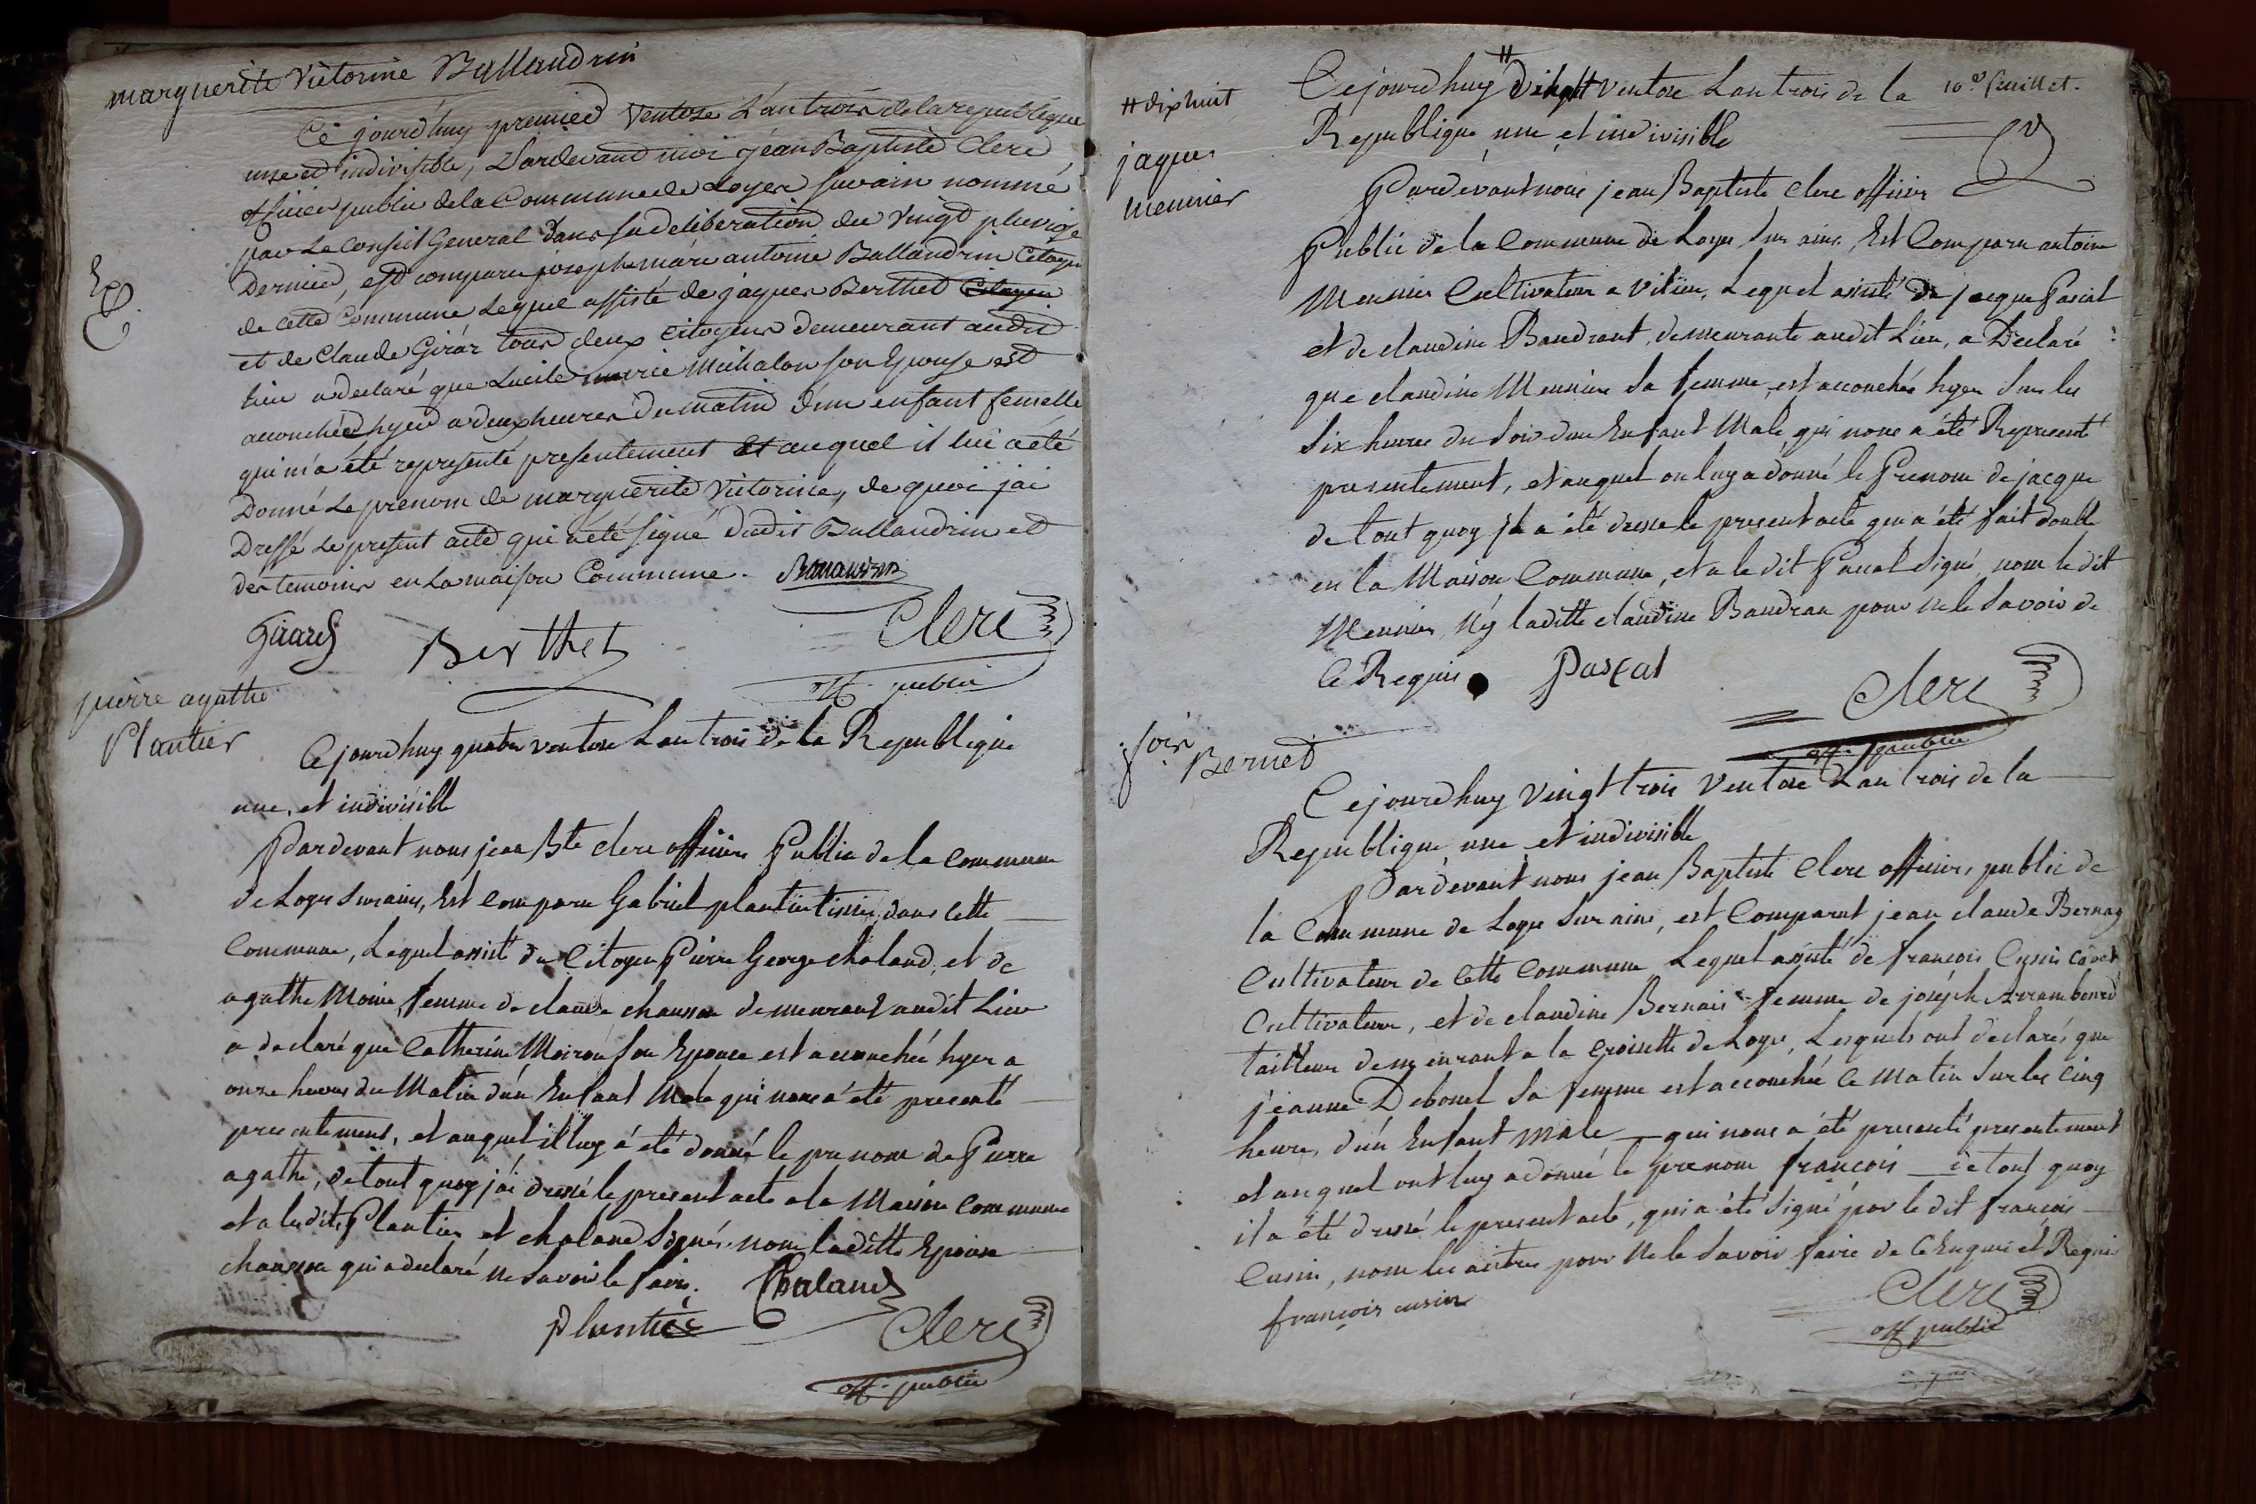 marguerite Victorine Ballandrin
Ce jourd'huy premier Ventose L'an trois de la republique
une et indivisible, Pardevant moi jéan Baptiste Clerc
officier public de la Commune de Loyes surain nommé
par Le Conseil General dans sa deliberation du Vingt pluviose
Dernier, est comparu joseph marie antoine Ballandrin Citoyen
de cette Commune Lequel assisté de jaques Berthet Citoyen
et de Claude Girar tous deux citoyens demeurant audit
lieu a declaré que Lucile marie Michalon son Epouse est
accouchée hyer a deux heures du matin d'un enfant femelle
qui m'a été representé presentement et auquel il lui a eté
Donné Le prenom de marguerite Victorine, de quoi j'ai
Dressé Le present acte qui a eté signé dudit Ballandrin et
des temoins en La maison Commune. Ballandrin
Girard Berthet Clerc
off. public
pierre agathe
Plantier
Ce jourdhuy quatre ventose Lan trois de la Republique
une, et indivisible
Pardevant nous jean Bte clerc officier Public de la commune
de Loyes surains, Est comparu Gabriel plantier tissier dans cette
Commune, Lequel assisté du Citoyen Pierre George chaland, et de
agathe Moine femme de claude chausson demeurant audit Lieu
a declaré que Catherine Moiron son Epouse est accouchée hyer a
onze heures du Matin d'un Enfant Male qui nous a été presenté
presentement, et auquel il luy a été donné le prenom de Pierre
agathe, de tout quoy j'ai dressé le present acte a la Maison commune
et a ledit Plantier et chaland Signés, non laditte Epouse
chausson qui a declaré ne savoir le faire.
Chaland
plantié Clerc
off. public
# dixhuit
jaques
meunier
Cejourdhuy # ventose Lan trois de la
10e feuillet.
Republique une et indivisible
Pardevant nous jean Baptiste clerc officier
Public de la Commune de Loyes sur ains, Est Comparu antoine
Meunier Cultivateur a Vilieu, Lequel assisté de jacque Pascal
et de claudine Baudrant, demeurante audit Lieu, a Declaré
que claudine Meunier sa femme, est accouchée hyer sur les
Six heures du Soir d'un Enfant Male, qui nous a été Representé
presentement, et auquel on luy a donné le Prenom de jacque
de tout quoy il a été dressé le present acte qui a été fait double
en la Maison Commune, et a le dit Pascal Signé, non le dit
Meunier, Ny laditte claudine Baudran pour ne le Savoir de
Ce Requis Pascal
Clerc
off. public
Bernet
Cejourdhuy Vingt trois Ventose Lan trois de la
Republique une et indivisible
Pardevant nous jean Baptiste Clerc officier public de
la Commune de Loyes Sur ains, est Comparut jean claude Bernay
Cultivateur de Cette Commune Lequel assisté de françois Cusin cadet
Cultivateur, et de claudine Bernais femme de joseph
tailleur demeurant a la Croisette de Loyes, Lesquels ont declarés que
jeanne Debonet Sa femme est accouchée Ce Matin Sur les Cinq
heures, d'un Enfant Male qui nous a été presenté presentement
et auquel ont luy a donné le prenom françois de tout quoy
il a été dressé le present acte, qui a été Signé par le dit françois
Cusin, non les autres pour ne le Savoir faire de Ce Enquis et Requis
françois cusin
Clerc
off public